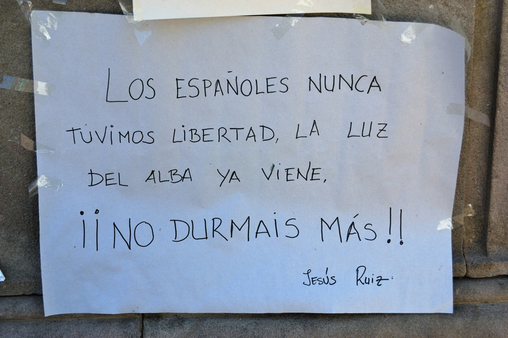 LOS ESPAÑOLES NUNCA
TUVIMOS LIBERTAD, LA LUZ
DEL ALBA YA VIENE,
¡¡NO DURMAIS MÁS!!
JESÚS RUIZ